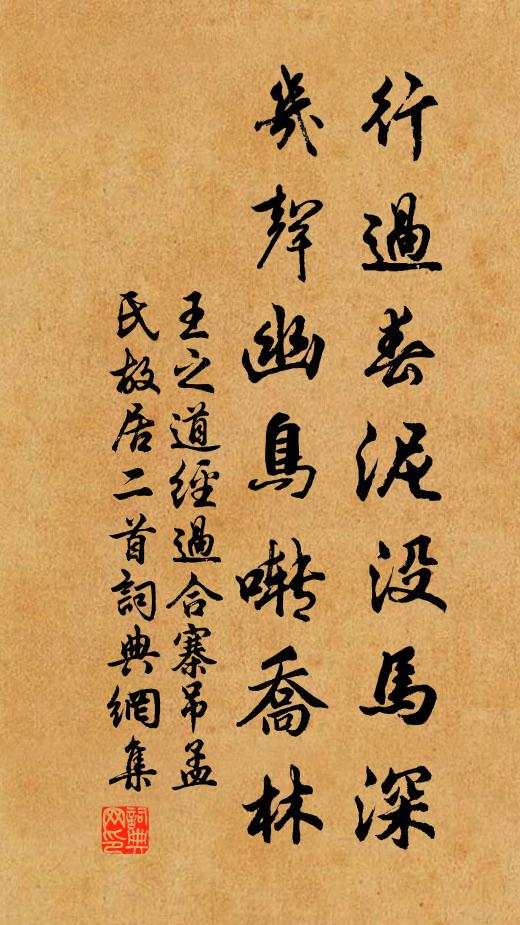 行過春泥没馬深
幾聲幽鳥囀喬林
王之道經過合寨吊孟
氏故居二首詞典網集
詞典网印